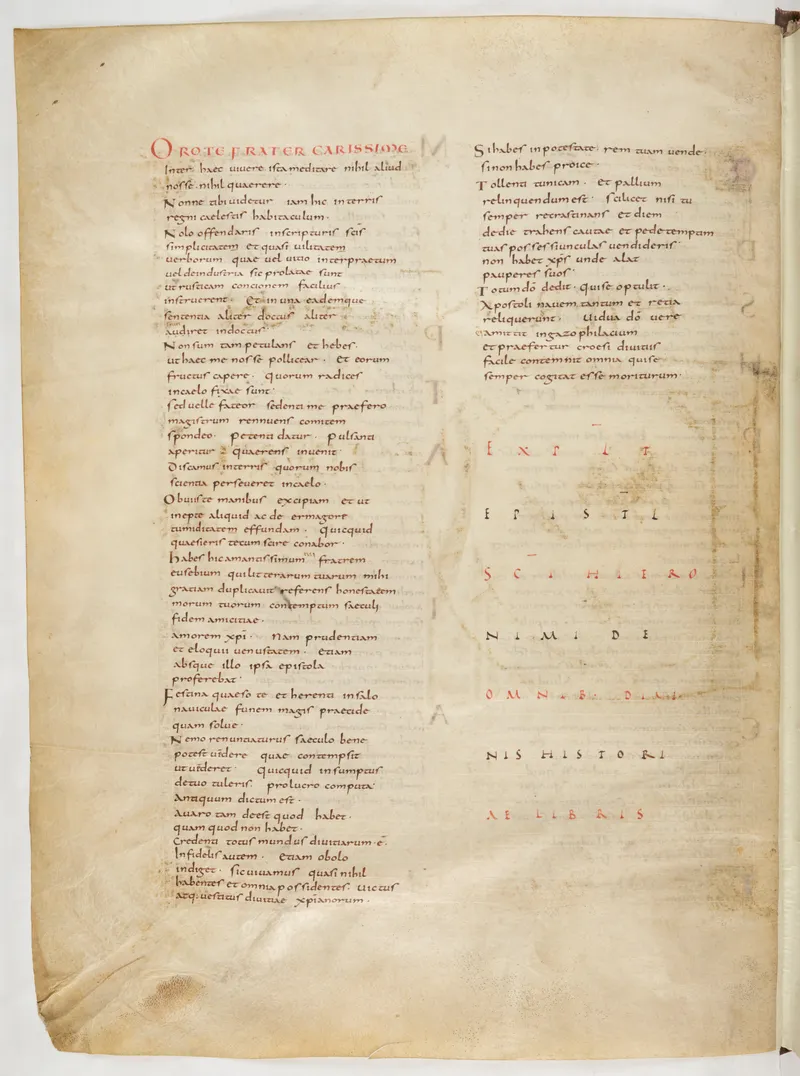 OROTE FRATER CARISSIME
Inter haec uiuere ista meditare nihil aliud
nosse. nihil quaerere.
Nonne tibi uidetur iam hic in terris
regni caelestis habitaculum.
Nolo offendaris inscripturis scis
simplicitatem et quasi uilitatem
uerborum quae uel uitio interpraetum
uel deindustria sic prolatae sunt
ut rusticam concionem facilius
instruerent. Et in una eademque
sententia aliter doctus aliter
audiret indoctus.
Non sum tam petulans et hebes.
ut haec me nosse pollicear. et eorum
fructus capere. quorum radices
incaelo fixae sunt.
sed uelle fateor sedenti me praefero
magistrum rennuens comitem
spondeo. petenti datur. pulsanti
aperitur quaerens inuenit.
Discamus interris quorum nobis
scientia perseueret incaelo.
Obuiste manibus excipiam et ut
inepte aliquid ac de ermagore
tumiditatem effundam. quicquid
quaesieris tecum scire conabor.
habes hic amantissimum fratrem
eusebium qui litterarum tuarum mihi
gratiam duplicauit referens honestatem
morum tuorum contemptum saeculi
fidem amicitiae.
amorem xpi. Nam prudentiam
et eloquii uenustatem. etiam
absque illo ipsa epistola
proferebat.
Festina quaeso te et herenti insalo
nauiculae funem magis praecide
quam solue.
Nemo renuntiaturus saeculo bene
potest uidere quae contempsit
ut uideret. quicquid insumptus
detuo tuleris prolucro computa.
Antiquum dictum est.
Auaro tam deest quod habet.
quam quod non habet.
Credenti totus mundus diuitiarum. ē.
Infidelis autem. etiam obolo
indiget. sic uiuamus quasi nihil
habentes et omnia possidentes. uictus
atq. uestitus diuitiae xpianorum.
Si habes inpotestate rem tuam uende.
si non habes proice.
Tollenti tunicam. et pallium
relinquendum est. scilicet nisi tu
semper recrastinans et diem
dedie trahens cautae et pedetemptim
tuas possessiunculas uendideris.
non habet xps unde alat
pauperes suos.
Totum dō dedit. qui se optulit.
Apostoli nauem tantum et retia
reliquerunt. Uidua dō uere
mittit ingazophilacium
et praefertur croesi diuitiis
facile contemnit omnia qui se
semper cogitat esse moriturum.
EXPLT
EPISTL
SCI HIERO
NIMI DE
OMNIB. DIUI
NIS HISTORI
AE LIBRIS